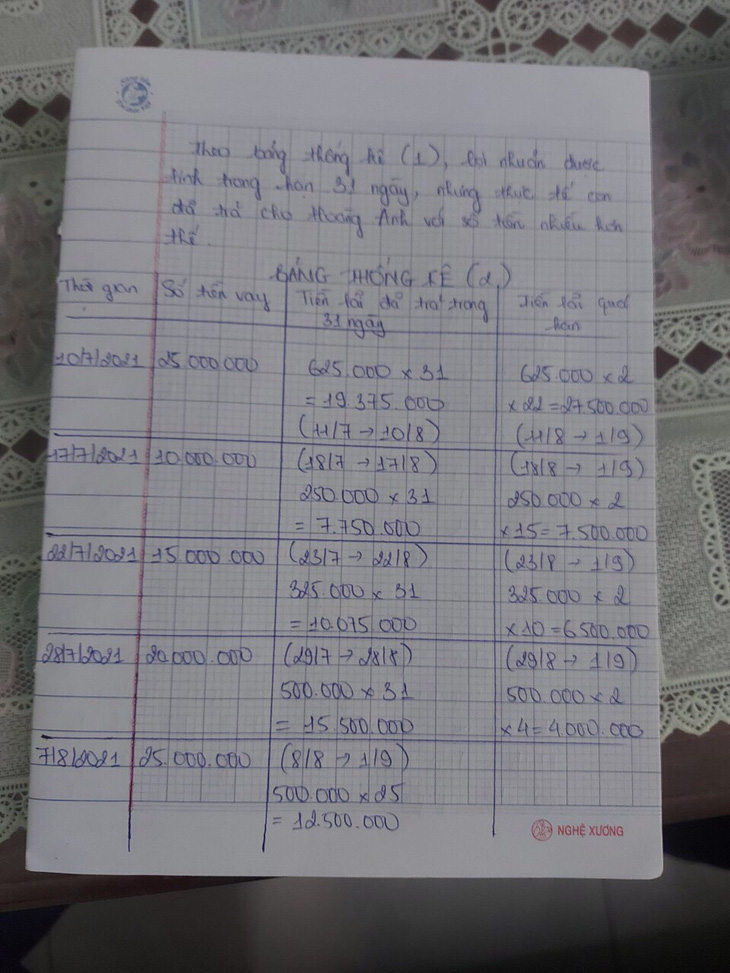 Theo bảng thống kê (1), lợi nhuận được
tính trong hạn 31 ngày, nhưng thực tế con
đã trả cho Hoàng Anh với số tiền nhiều hơn
thế.
BẢNG THỐNG KÊ (2)
Thời gian Số tiền vay Tiền lãi đã trả trong Tiền lãi quá
31 ngày hạn
10/7/2021 25.000.000 625.000 x 31 625.000 x 2
= 19.375.000 x 22 = 27.500.000
(11/7 → 10/8) (11/8 → 1/9)
17/7/2021 10.000.000 (18/7 → 17/8) (18/8 → 1/9)
250.000 x 31 250.000 x 2
= 7.750.000 x 15 = 7.500.000
22/7/2021 15.000.000 (23/7 → 22/8) (23/8 → 1/9)
325.000 x 31 325.000 x 2
= 10.075.000 x 10 = 6.500.000
28/7/2021 20.000.000 (29/7 → 28/8) (29/8 → 1/9)
500.000 x 31 500.000 x 2
= 15.500.000 x 4 = 4.000.000
7/8/2021 25.000.000 (8/8 → 1/9)
500.000 x 25
= 12.500.000
NGHỆ XƯƠNG